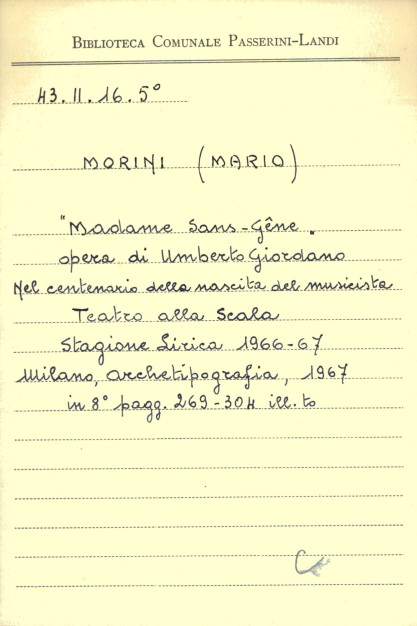 BIBLIOTECA COMUNALE PASSERINI-LANDI
43. II. 16. 5°
MORINI (MARIO)
"Madame Sans-Gêne„
opera di Umberto Giordano
Nel centenario della nascita del musicista
Teatro alla Scala
Stagione Lirica 1966-67
Milano, Archetipografia, 1967
in 8° pagg. 269-304 ill.to